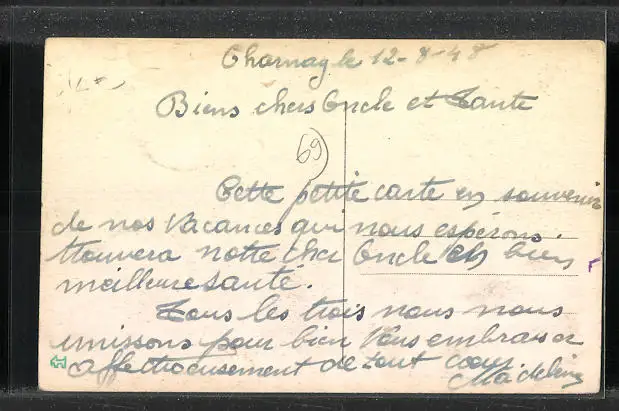 Charnay le 12-8-48
Biens chers Oncle et Tante
69
Cette petite carte en souvenir
de nos vacances qui nous espérons
trouvera notre cher Oncle en bien
meilleure santé.
Tous les trois nous nous
unissons pour bien vous embrasser
affectueusement de tout coeur
Madeleine